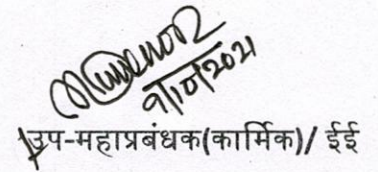 9/10/2021
उप-महाप्रबंधक(कार्मिक)/ ईई